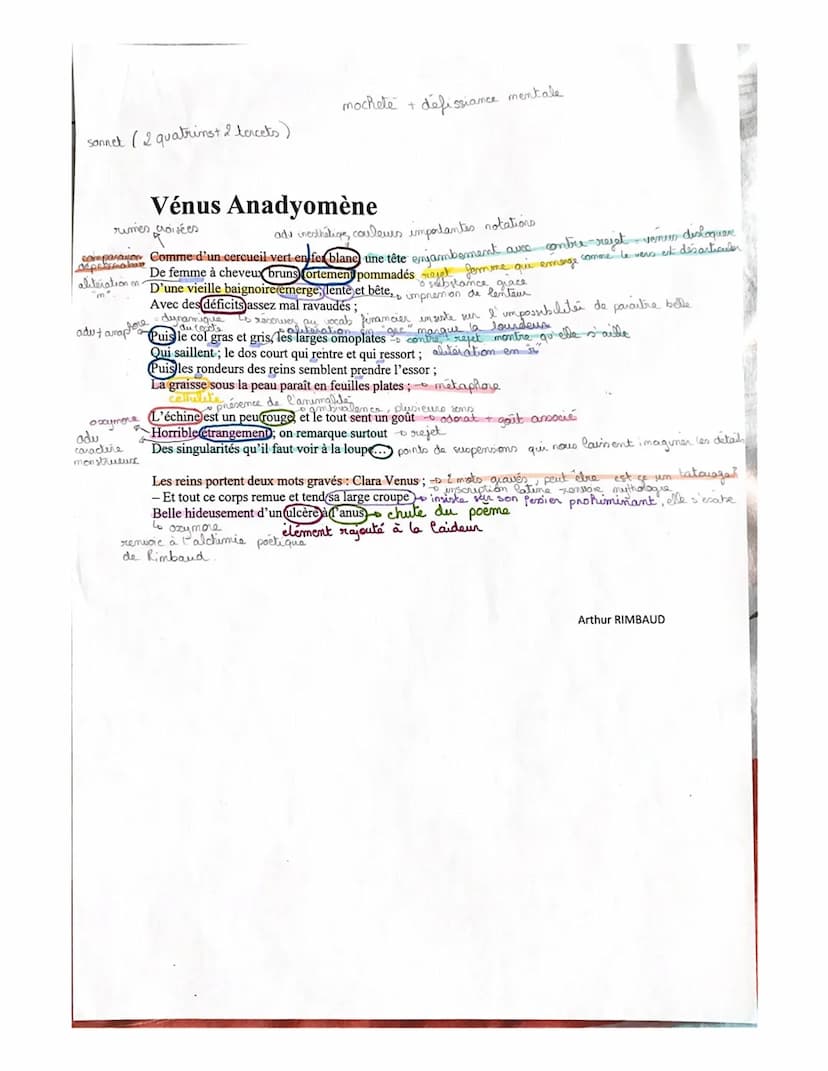 mocheté + défissiance mentale
sonnet (2 quatrins + 2 tercets)
Vénus Anadyomène
rimes croisées
couleurs importantes notations
comparaison dépréciative
Comme d'un cercueil vert en fer blanc, une tête enjambement avec contre-rejet - venus disloquée
De femme à cheveux bruns fortement pommadés rejet femme qui émerge comme le vers est désarticulé
→ substance grace
alitération en "m"
D'une vieille baignoire émerge, lente et bête, → impression de lenteur
Avec des déficits assez mal ravaudés ;
→ recourir au vocab financier insiste sur l'impossibilité de paraître belle
dynamique du texte
alitération en "gr" marque la lourdeur
adv + anaphore
Puis le col gras et gris, les larges omoplates → contre-rejet montre qu'elle s'aille
Qui saillent ; le dos court qui rentre et qui ressort ; alitération en "r"
Puis les rondeurs des reins semblent prendre l'essor ;
La graisse sous la peau paraît en feuilles plates ; → métaphore
cellulite
→ présence de l'animalité
→ ambivalence, plusieurs sens
oxymore
L'échine est un peu rouge, et le tout sent un goût → odorat + goût associé
adv caractère monstrueux
Horrible étrangement ; on remarque surtout → rejet
Des singularités qu'il faut voir à la loupe... points de suspensions qui nous laissent imaginer les détails
Les reins portent deux mots gravés : Clara Venus ; → 2 mots gravés, peut être est ce un tatouage?
→ inscription latine renvoie mythologie
– Et tout ce corps remue et tend sa large croupe → insiste sur son fessier prohiminant, elle s'exibe
Belle hideusement d'un ulcère à l'anus. → chute du poème
→ oxymore
élément rajouté à la laideur
renvoie à l'alchimie poétique
de Rimbaud.
Arthur RIMBAUD